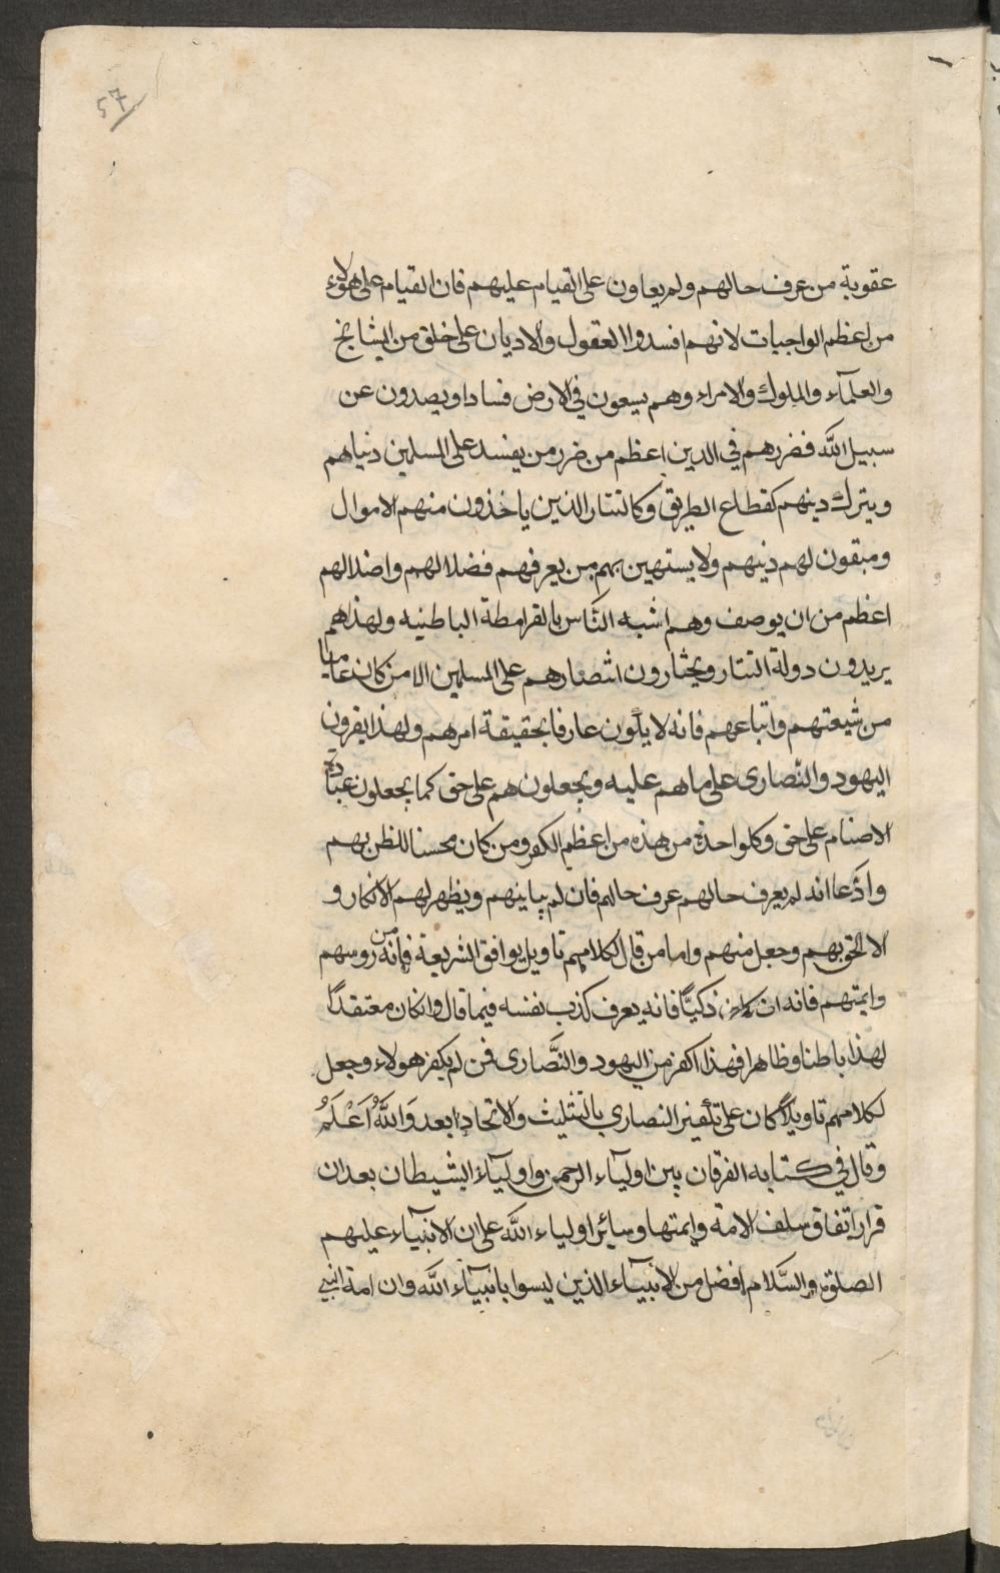 57
عقوبة من عرف حالهم ولم يعاون على القيام عليهم فان القيام على هولاء
من اعظم الواجبات لانهم افسدوا العقول والاديان على خلق من المشايخ
والعلمآء والملوك والامراء وهم يسعون في الارض فسادا ويصدون عن
سبيل الله فضررهم في الدين اعظم من ضرر من يفسد على المسلمين دنياهم
ويترك دينهم كقطاع الطريق وكالتتار الذين ياخذون منهم الاموال
ومبقون لهم دينهم ولا يستهين بهم من يعرفهم فضلالهم واضلالهم
اعظم من ان يوصف وهم اشبه الناس بالقرامطة الباطنيه ولهذا هم
يريدون دولة التتار ويختارون انتصارهم على المسلمين الا من كان عاميا
من شيعتهم واتباعهم فانه لا يكون عارفا بحقيقة امرهم ولهذا يقرون
اليهود والنصارى على ما هم عليه ويجعلونهم على حق كما يجعلون عبادة
الاصنام على حق وكل واحدة من هذه من اعظم الكفر ومن كان محسنا للظن بهم
وادعا انه لم يعرف حالهم عرف حالهم فان لم يباينهم ويظهر لهم الانكار و
الا الحق بهم وجعل منهم واما من قال لكلامهم تاويل يوافق الشريعة فانه من روسهم
وايمتهم فانه ان كان ذكيًّا فانه يعرف كذب نفسه فيما قال وان كان معتقدًا
لهذا باطنا وظاهرا فهذا اكفر من اليهود والنَّصارى فمن لم يكفر هولاء وجعل
لكلامهم تاويلًا كان على تكفير النصارى بالتثليث والاتحاد ابعد وَاللهُ اَعْلَمُ
وقال في كتابه الفرقان بين اوليآء الرحمن واوليآء الشيطان بعد ان
قرر اتفاق سلف الامة وايمتها وسائر اولياء الله على ان الانبيآء عليهم
الصلوة والسَّلام افضل من الانبيآء الذين ليسوا بانبيآء الله وان امة النبي